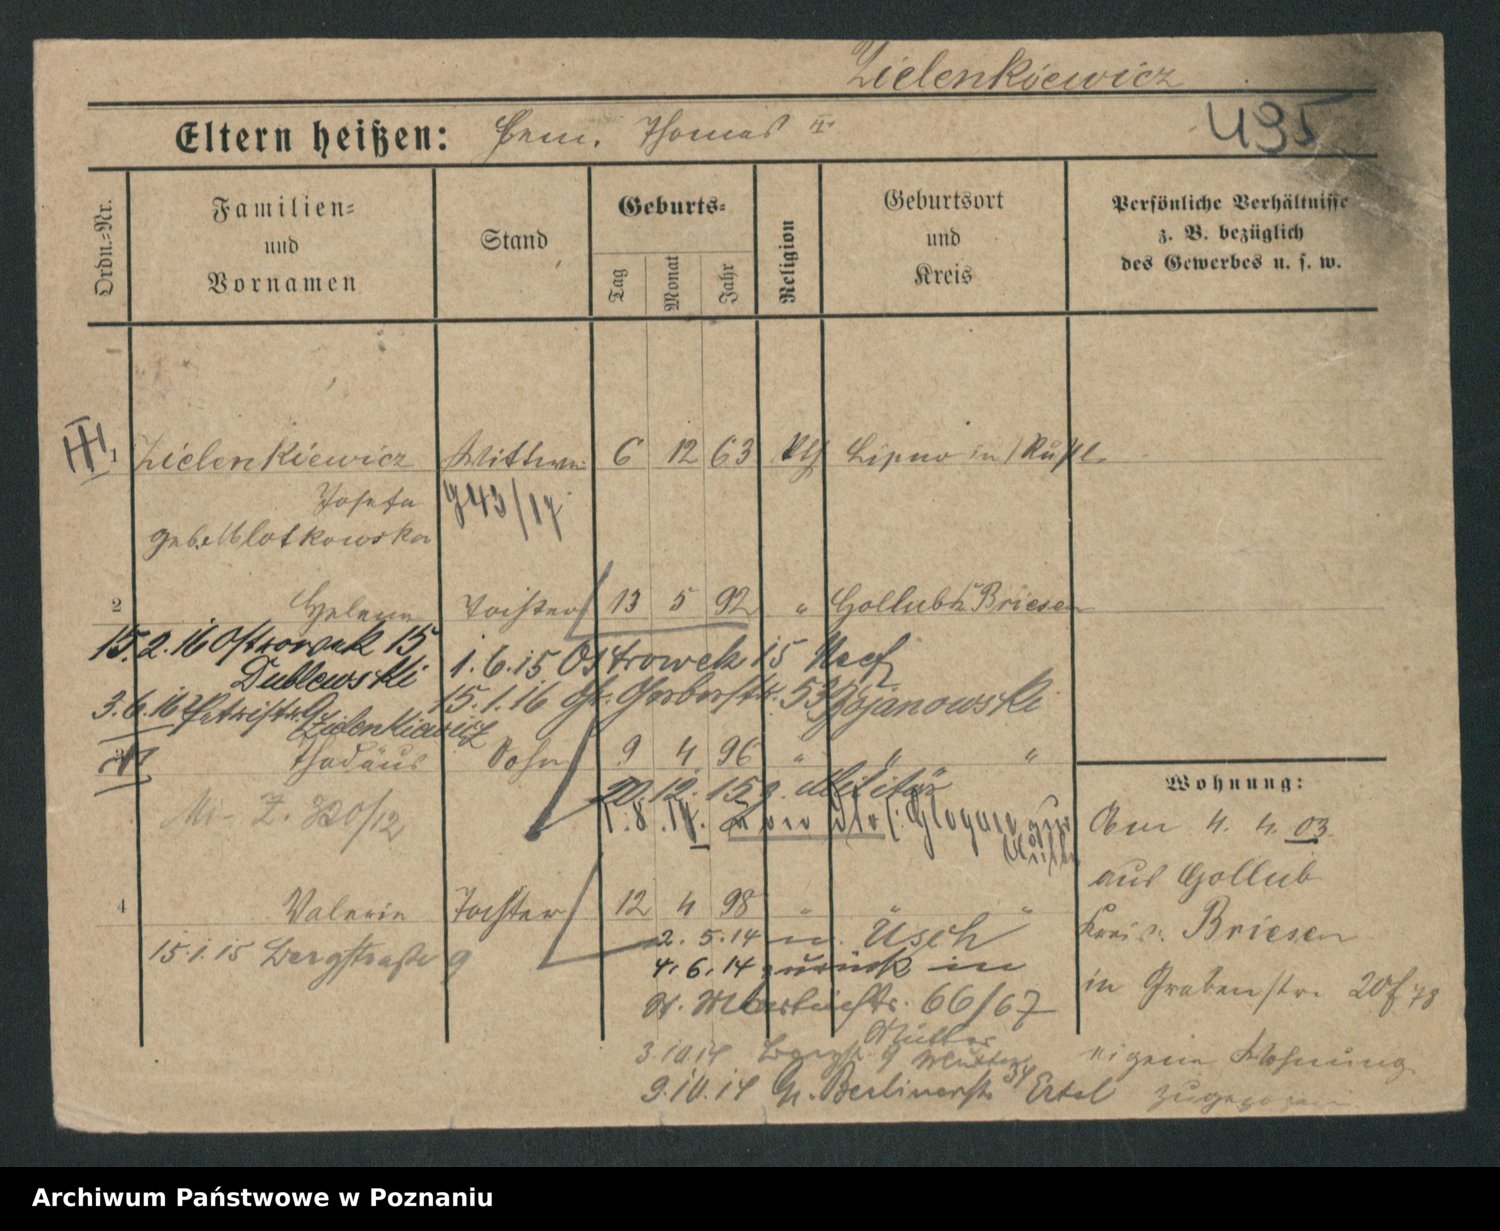 Zielenkiewicz
Eltern heißen: Thomas
495
Ordn.-Nr.
Familien-
und
Vornamen
Stand
Geburts-
Tag
Monat
Jahr
Religion
Geburtsort
und
Kreis
Persönliche Verhältnisse
z. B. bezüglich
des Gewerbes u. s. w.
1 Zielenkiewicz Wittwe 6 12 63 kth Lipno in Rußl.
Josefa
geb. Mlotkowska
2 Helene Tochter 13 5 92 " Gollub Briesen
15.2.16 Ostrowek 15
Dublewski
1.6.15 Ostrowek 15
3.6.16 Petristr.
Zielenkiewicz
15.1.16 Gr. Gerberstr. 53 Bojanowski
3 Thadäus Sohn 9 4 96 " " "
20.12.15 z. Militär
Mi- Z. 320/12
4 Valerie Tochter 12 4 98 " " "
15.1.15 Bergstraße 9
2.5.14 n. Usch
4.6.14 zurück in
66/67
Mutter
3.10.14 Bergstr. 9
9.10.14 Gr. Berlinerstr. Ertel
Wohnung:
Am 4. 4. 03
aus Gollub
Kreis Briesen
in Grabenstr. 20
eigene Wohnung
zugezogen
Archiwum Państwowe w Poznaniu